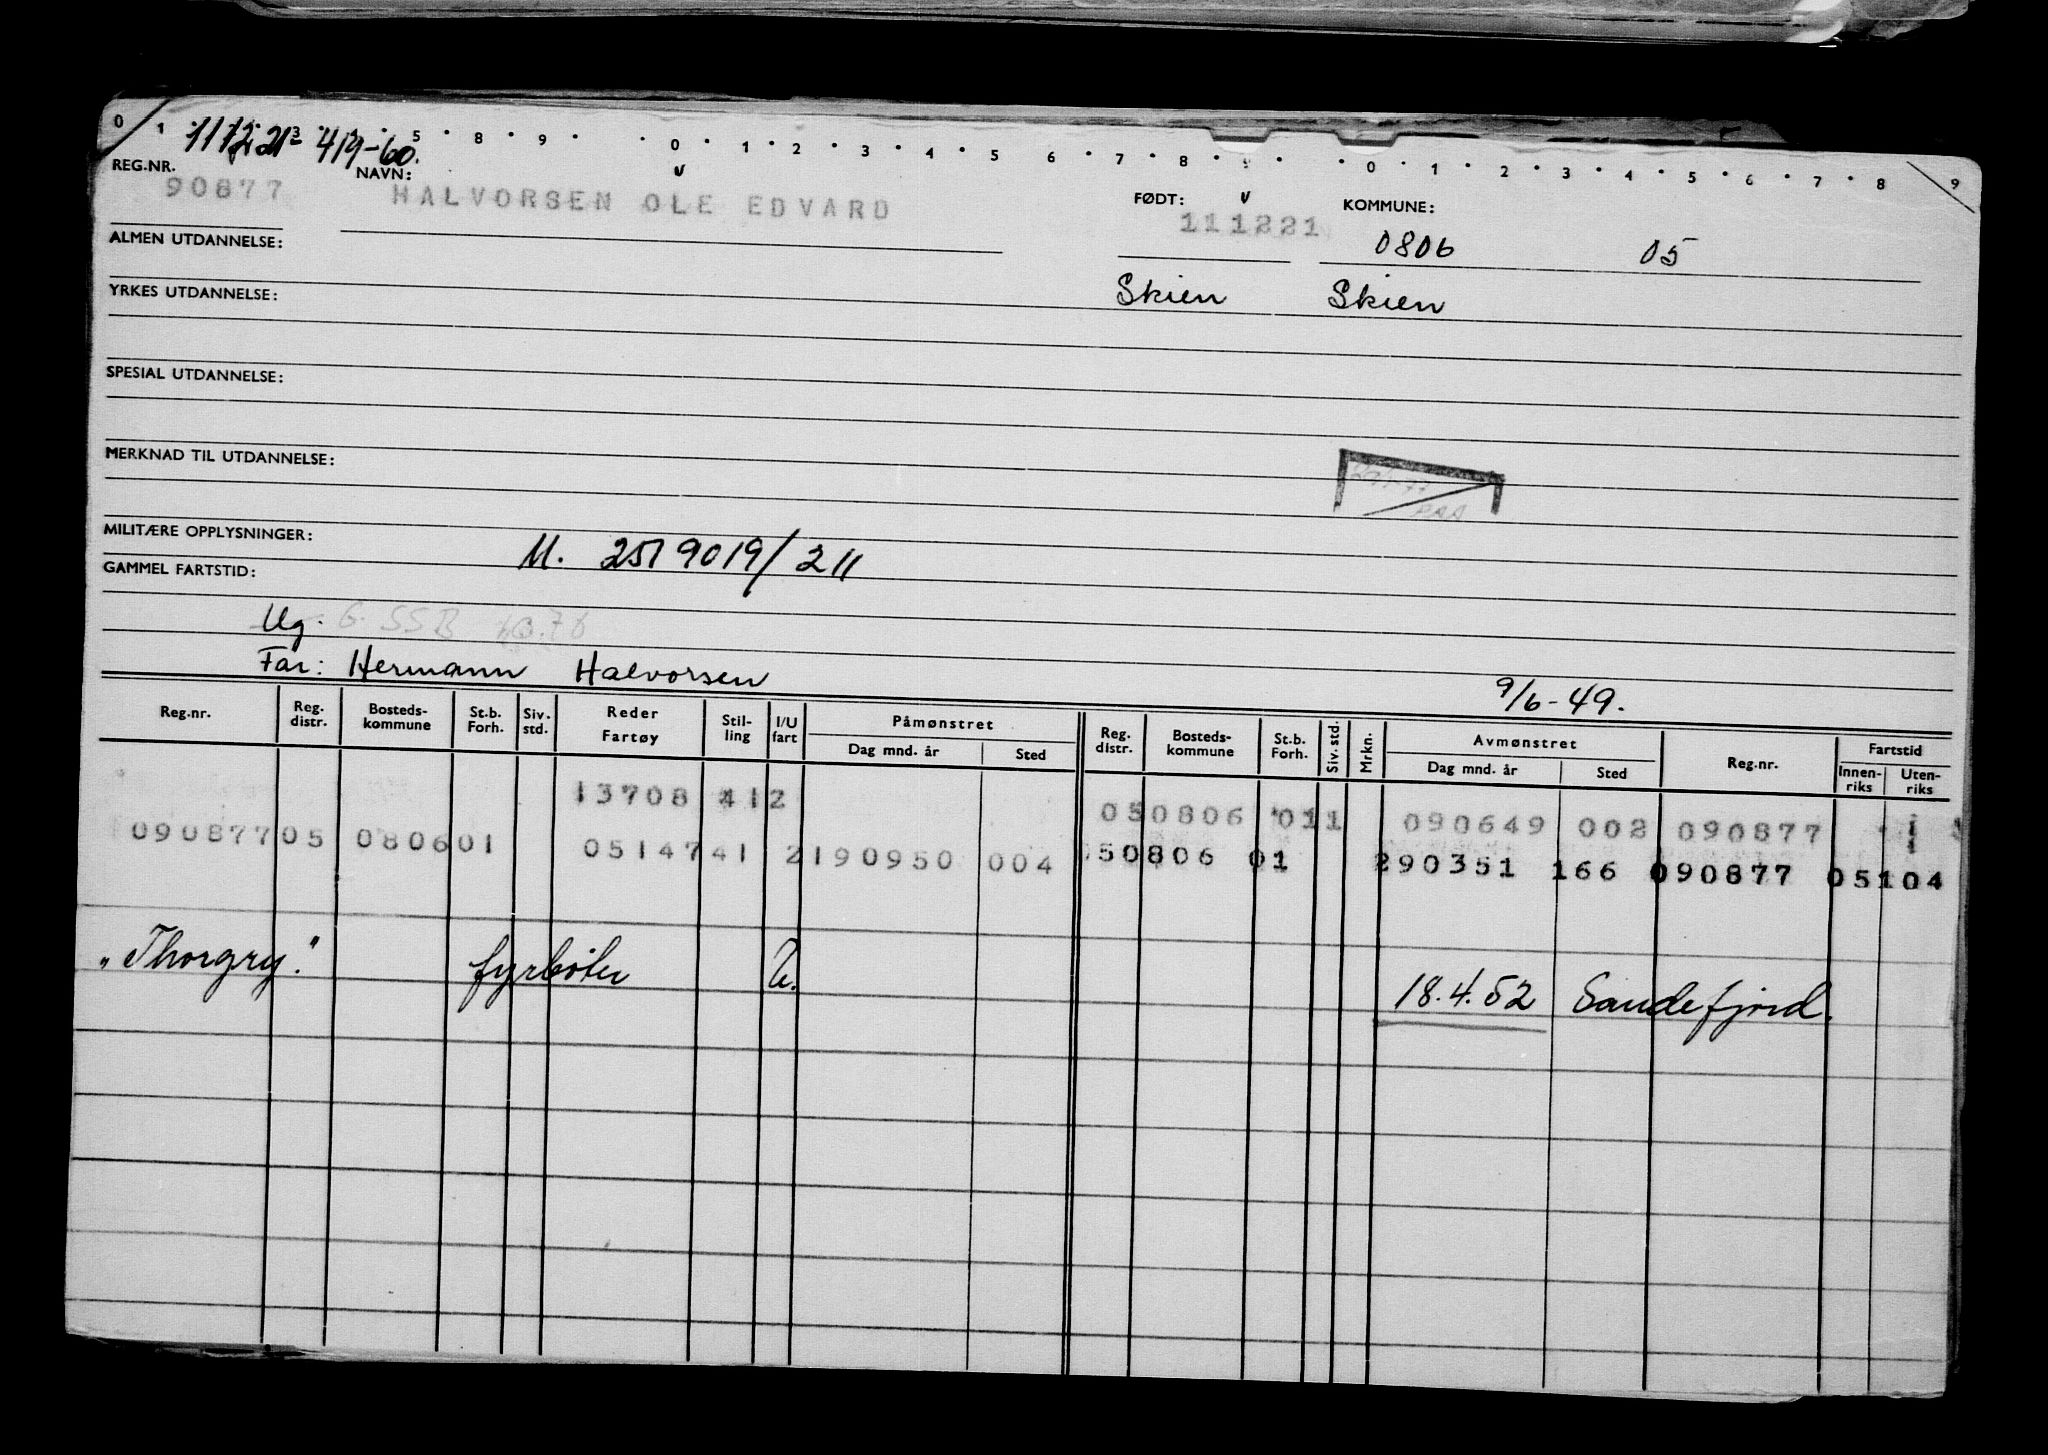 0 1 5 8 9 0 1 2 3 4 5 6 7 8 9 0 1 2 3 4 5 6 7 8 9
419-60.
REG.NR. NAVN: FØDT: KOMMUNE:
90877 HALVORSEN OLE EDVARD 111221 0806 05
ALMEN UTDANNELSE:
Skien Skien
YRKES UTDANNELSE:
SPESIAL UTDANNELSE:
MERKNAD TIL UTDANNELSE:
MILITÆRE OPPLYSNINGER: M. 2519019/211
GAMMEL FARTSTID:
Ug. G. SSB
Far: Hermann Halvorsen 9/6-49.
Reg.nr. Reg. distr. Bosteds-kommune St.b. Forh. Siv. std. Reder Fartøy Stil-ling I/U fart Påmønstret Dag mnd. år Sted Reg. distr. Bosteds-kommune St.b. Forh. Siv. std. Mrkn. Avmønstret Dag mnd. år Sted Reg.nr. Fartstid Innen-riks Uten-riks
13708 412 050806 011 090649 002 090877
090877 05 0806 01 05147 41 2 190950 004 50806 01 290351 166 090877 05104
"Thorgry." fyrbøter U. 18.4.52 Sandefjord.